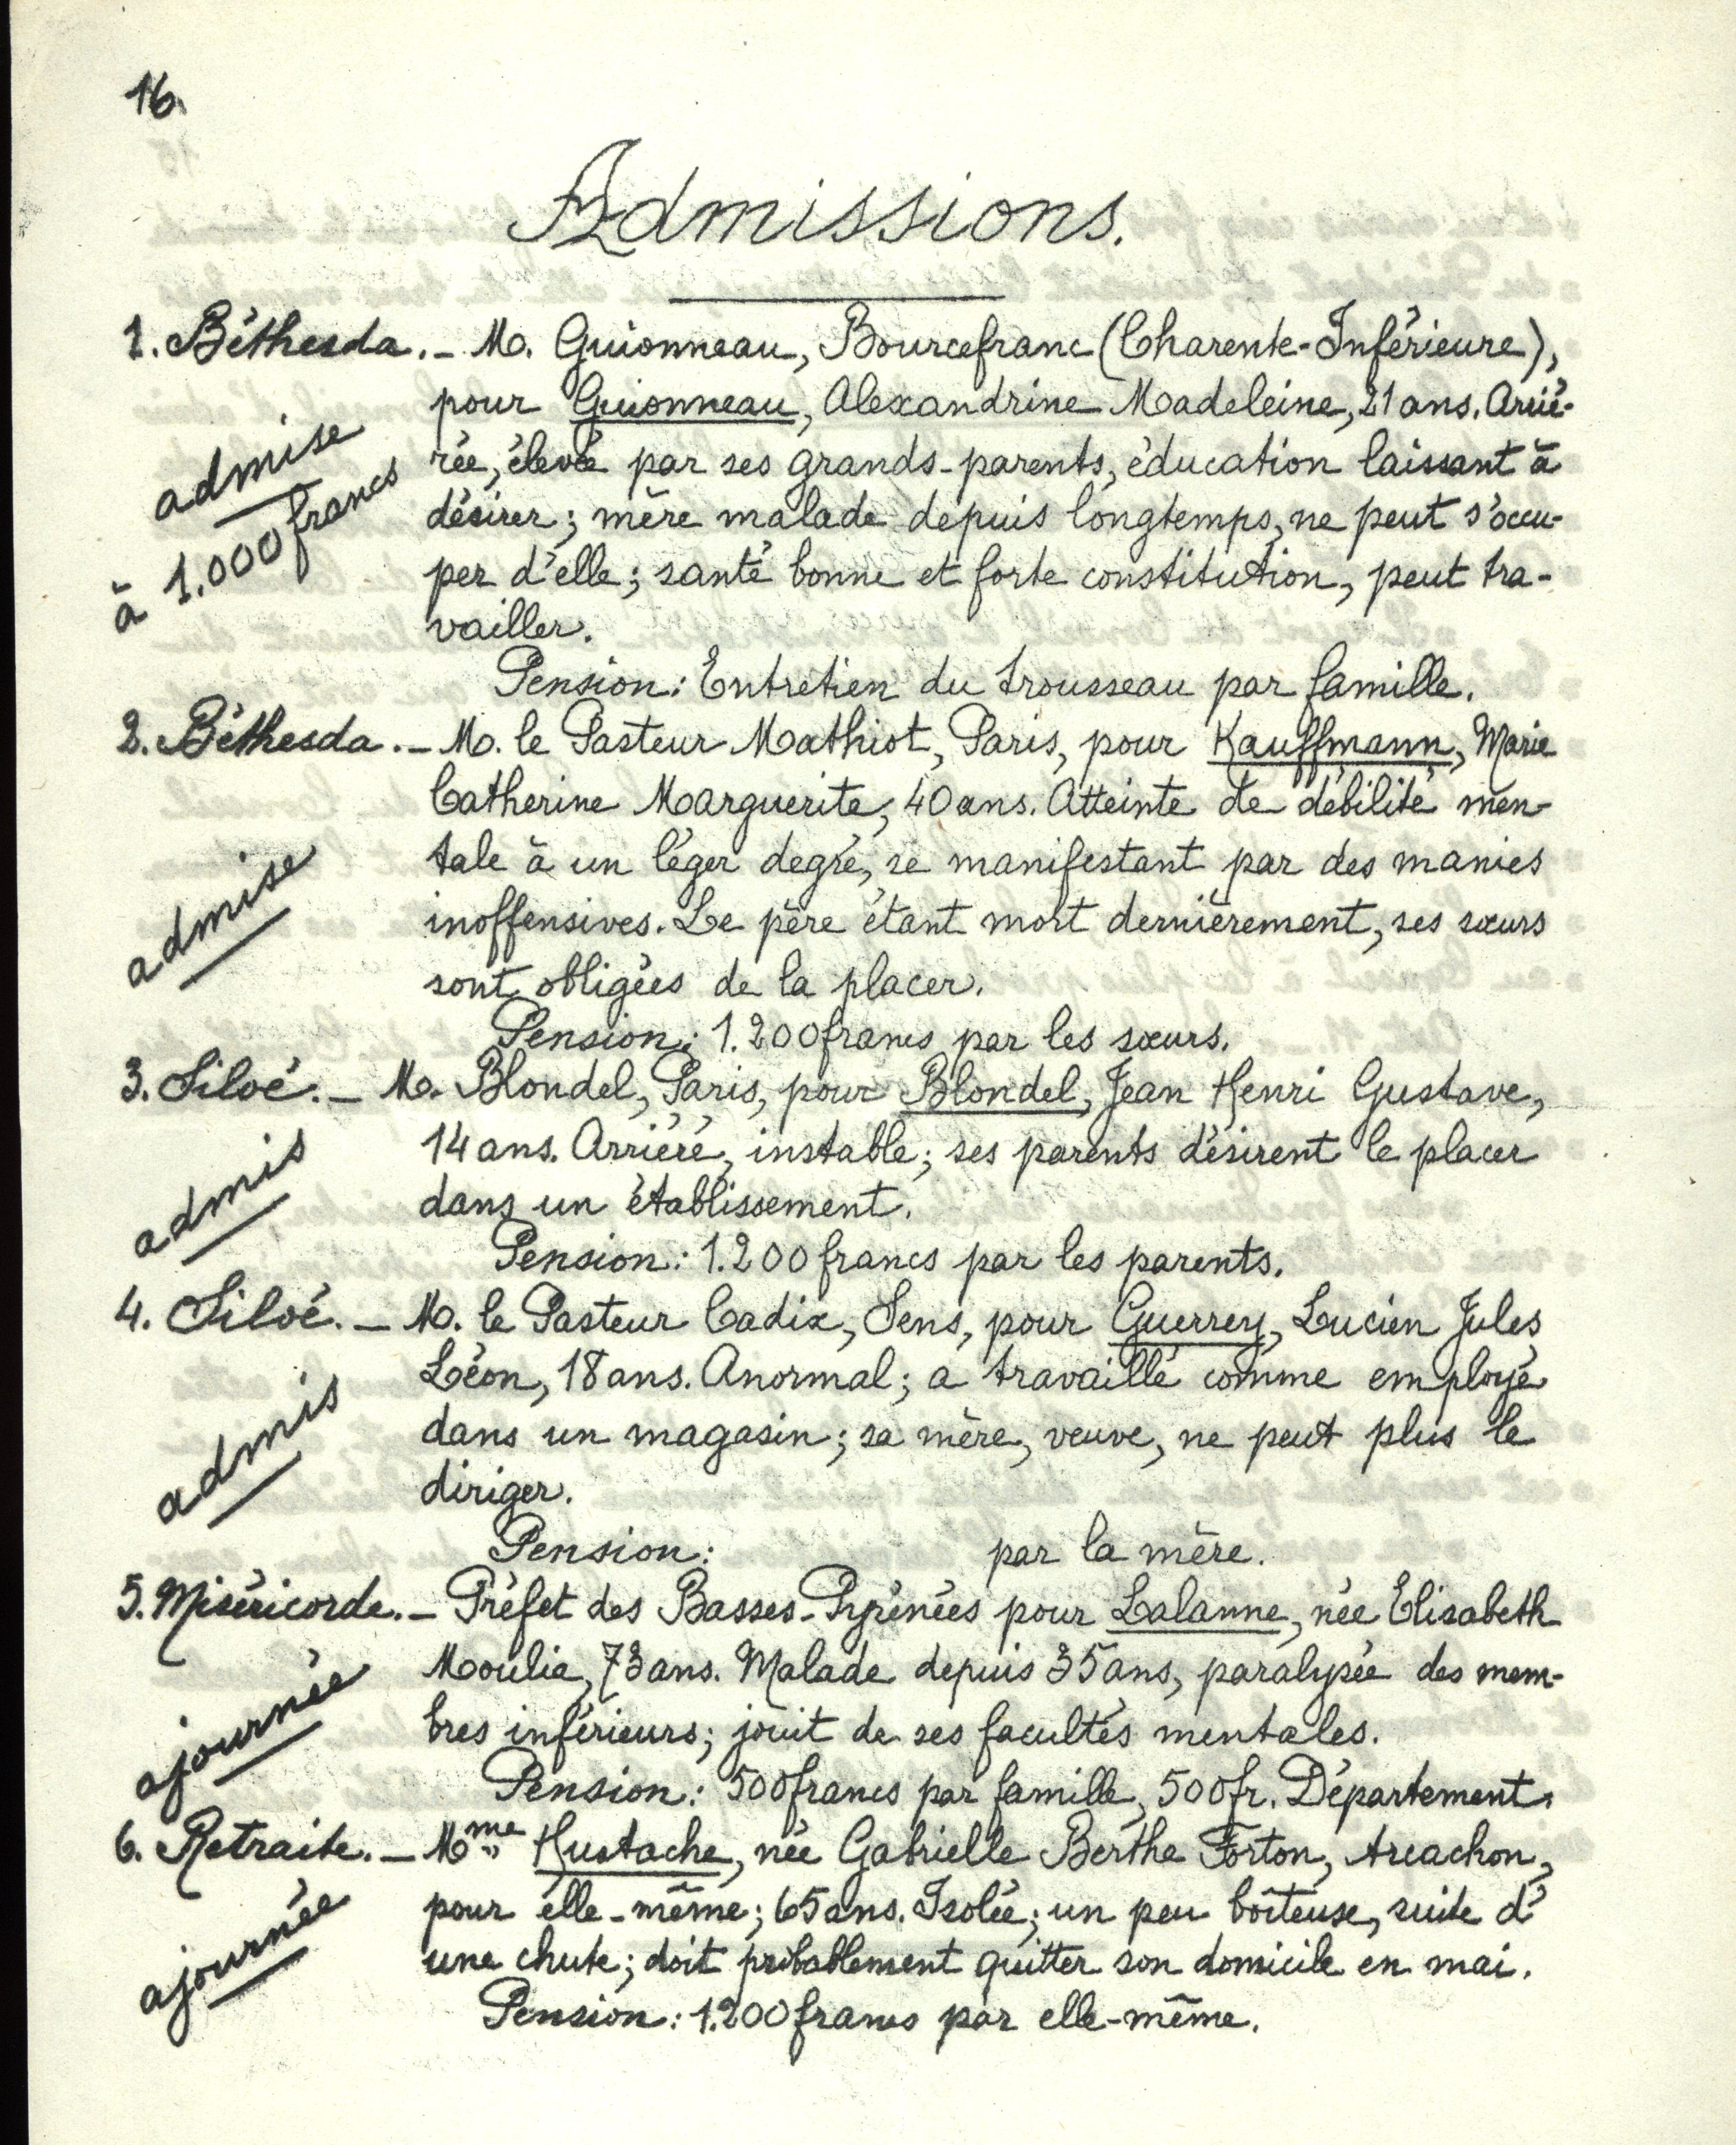 16.
Admissions.
1. Béthesda. _ M. Guionneau, Bourcefranc (Charente-Inférieure),
pour Guionneau, Alexandrine Madeleine, 21 ans. Arrié-
rée, élevée par ses grands-parents, éducation laissant à
désirer; mère malade depuis longtemps, ne peut s'occu-
per d'elle; santé bonne et forte constitution, peut tra-
vailler.
admise
à 1.000 francs
Pension: Entretien du trousseau par famille.
2. Béthesda. _ M. le Pasteur Mathiot, Paris, pour Kauffmann, Marie
Catherine Marguerite, 40 ans. Atteinte de débilité men-
tale à un léger degré, se manifestant par des manies
inoffensives. Le père étant mort dernièrement, ses sœurs
sont obligées de la placer.
admise
Pension: 1.200 francs par les sœurs.
3. Siloé. _ M. Blondel, Paris, pour Blondel, Jean Henri Gustave,
14 ans. Arriéré, instable; ses parents désirent le placer
dans un établissement.
admis
Pension: 1.200 francs par les parents.
4. Siloé. _ M. le Pasteur Cadix, Sens, pour Guerrey, Lucien Jules
Léon, 18 ans. Anormal; a travaillé comme employé
dans un magasin; sa mère, veuve, ne peut plus le
diriger.
admis
Pension: par la mère.
5. Miséricorde. _ Préfet des Basses-Pyrénées pour Lalanne, née Elisabeth
Moulia, 73 ans. Malade depuis 35 ans, paralysée des mem-
bres inférieurs; jouit de ses facultés mentales.
ajournée
Pension: 500 francs par famille, 500 fr. Département.
6. Retraite. _ Mme Hustache, née Gabrielle Berthe Forton, Arcachon,
pour elle-même; 65 ans. Isolée; un peu boiteuse, suite d'
une chute; doit probablement quitter son domicile en mai.
ajournée
Pension: 1.200 francs par elle-même.